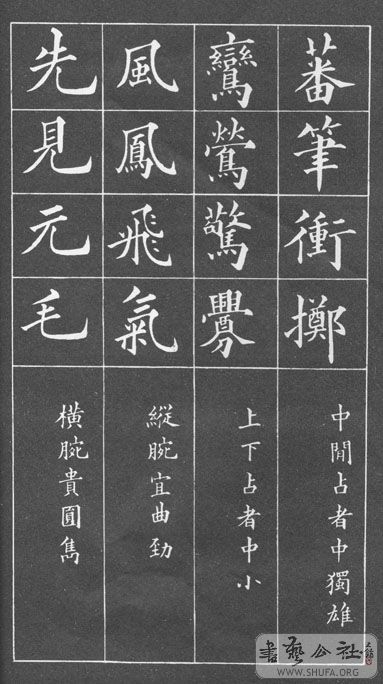 蕃筆衝擲
中閒占者中獨雄
鸞鶯驚釁
上下占者中小
風鳳飛氣
縱腕宜曲勁
先見元毛
橫腕貴圓雋
書藝公社
WWW.SHUFA.ORG